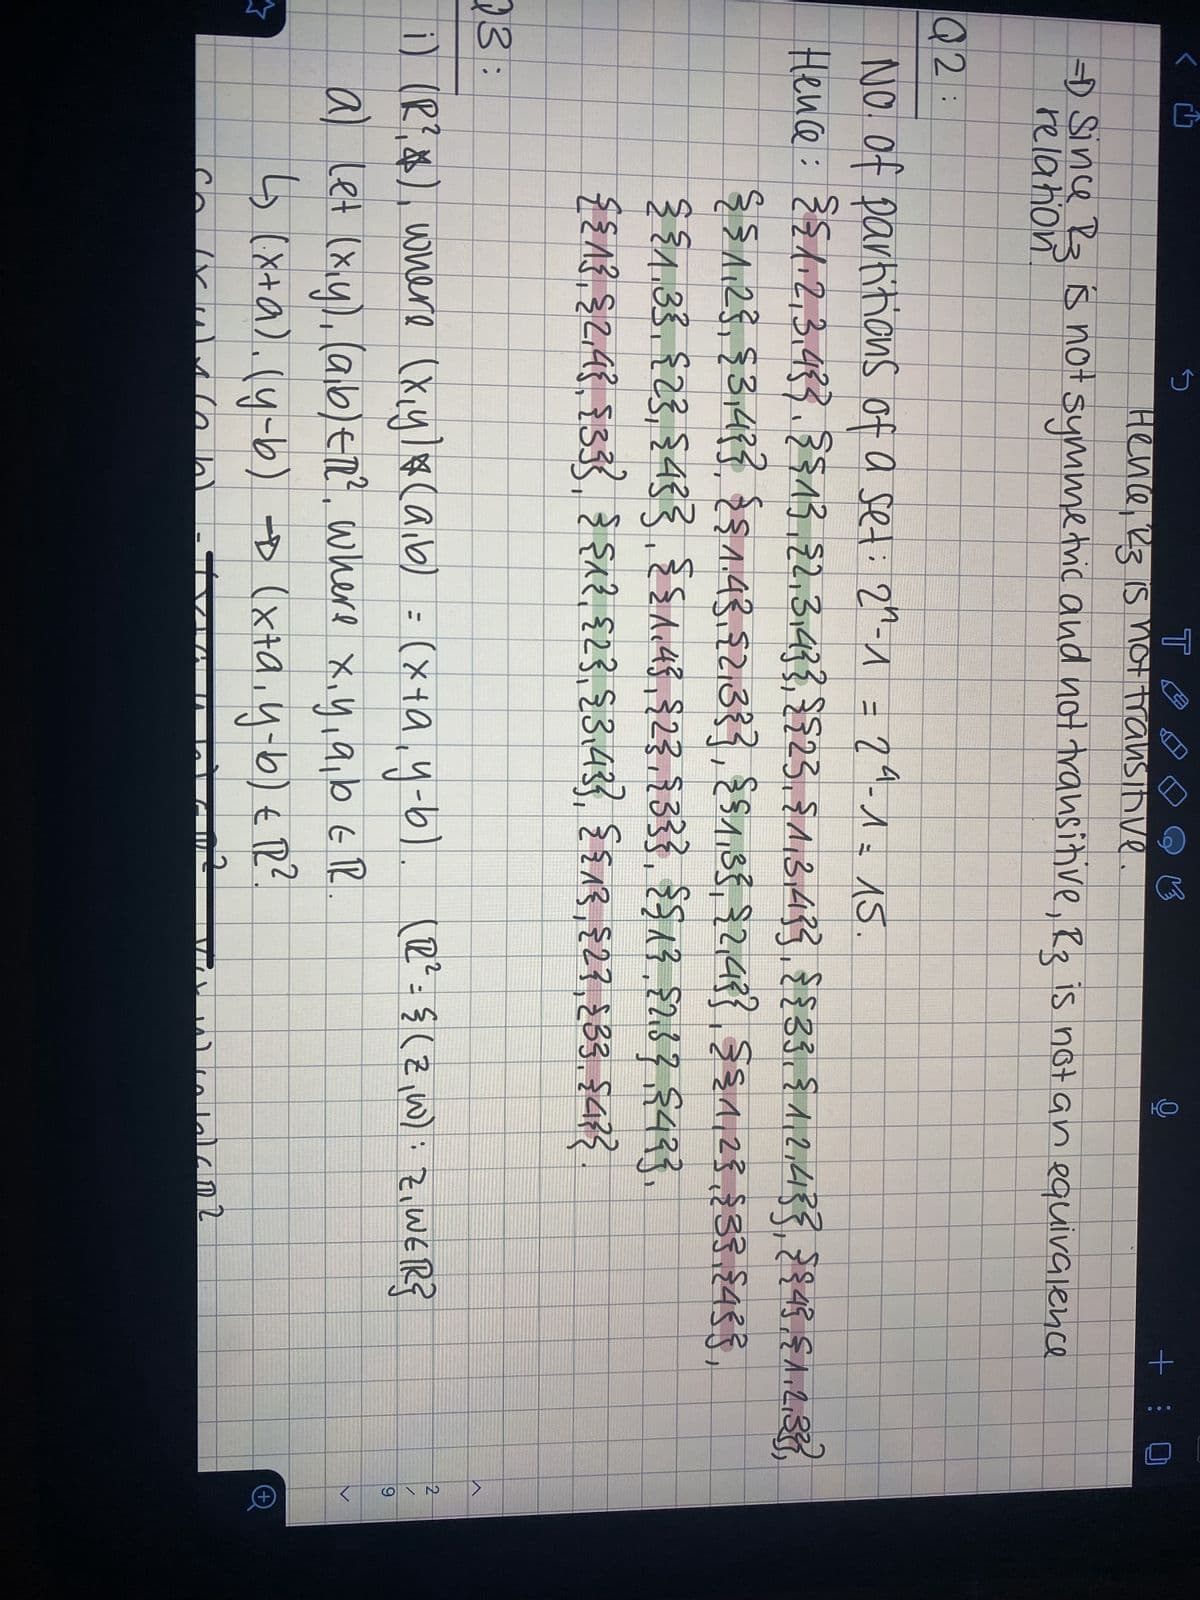 Hence, R3 is not transitive.
=> Since R3 is not symmetric and not transitive, R3 is not an equivalence
relation.
Q2:
No. of partitions of a set: 2ⁿ-1 = 2⁴-1 = 15.
Hence: {{1,2,3,4}}, {{1},{2,3,4}}, {{2},{1,3,4}}, {{3},{1,2,4}}, {{4},{1,2,3}},
{{1,2},{3,4}}, {{1,4},{2,3}}, {{1,3},{2,4}}, {{1,2},{3},{4}},
{{1,3},{2},{4}}, {{1,4},{2},{3}}, {{1},{2,3},{4}},
{{1},{2,4},{3}}, {{1},{2},{3,4}}, {{1},{2},{3},{4}}.
Q3:
i) (R²,*), where (x,y)*(a,b) = (x+a, y-b). (R² = {(z,w): z,w∈R}
a) let (x,y), (a,b)∈R², where x,y,a,b ∈ R.
↳ (x+a), (y-b) → (x+a, y-b) ∈ R².
2/9